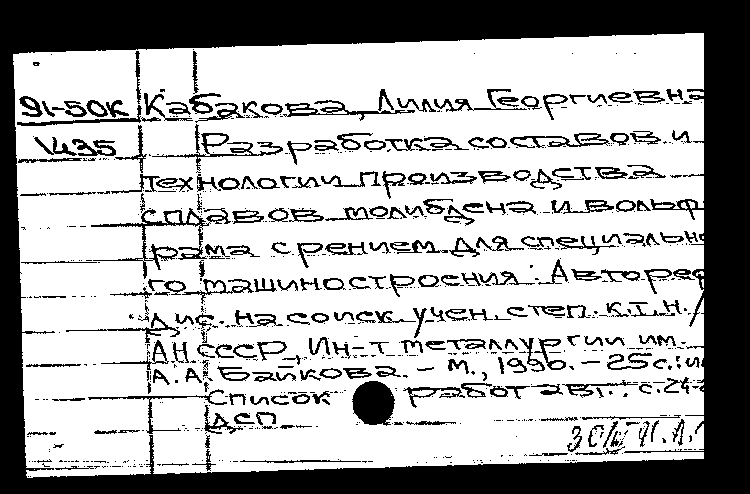 91-50К Кабакова, Лилия Георгиевна
1435 Разработка составов и
технологии производства
сплавов молибдена и вольф
рама с рением для специально
го машиностроения: Авторе
дис. на соиск. учен. степ. к.т.н./
АН СССР, Ин-т металлургии им.
А.А. Байкова. - М., 1990. - 25 с.: и
Список работ авт.: с. 24-
ДСП